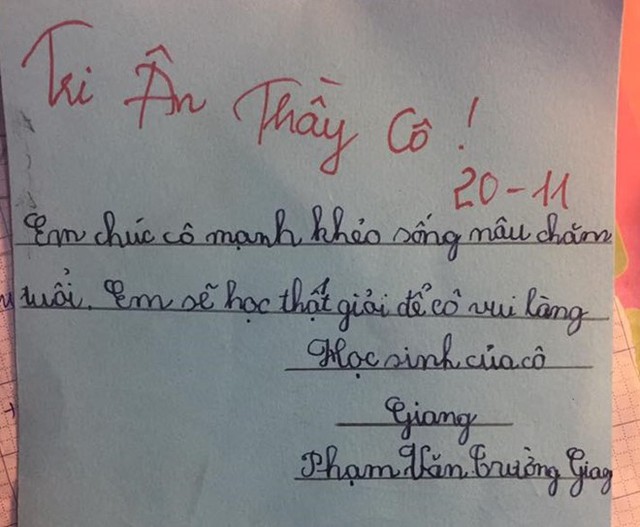 Tri Ân Thầy Cô!
20-11
Em chúc cô mạnh khẻo sống nâu chăm
tuổi. Em sẽ học thật giải để cô vui làng
Học sinh của cô
Giang
Phạm Văn Trưởng Giag